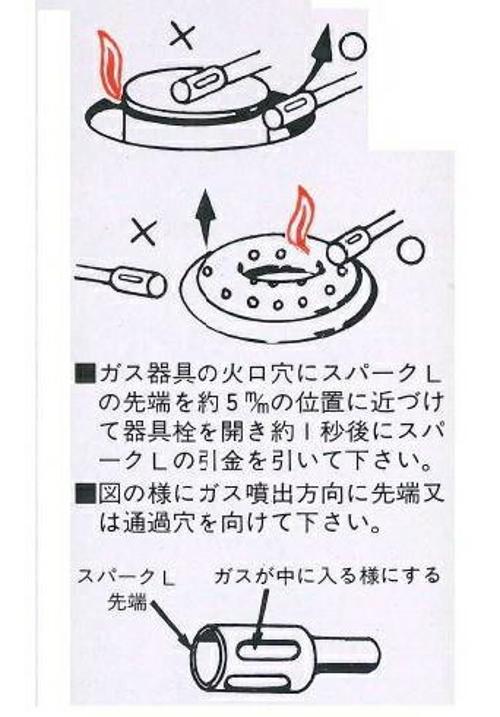 ■ガス器具の火口穴にスパークL
の先端を約5㎜の位置に近づけ
て器具栓を開き約1秒後にスパ
ークLの引金を引いて下さい。
■図の様にガス噴出方向に先端又
は通過穴を向けて下さい。
スパークL ガスが中に入る様にする
先端